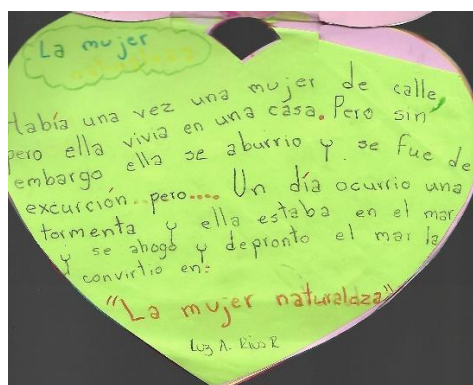 La mujer
naturaleza
Había una vez una mujer de calle,
pero ella vivia en una casa. Pero sin
embargo ella se aburrio y se fue de
excurción pero.... Un día ocurrio una
tormenta y ella estaba en el mar
y se ahogó y depronto el mar la
convirtio en:
"La mujer naturaldza"
Luz A. Rios R